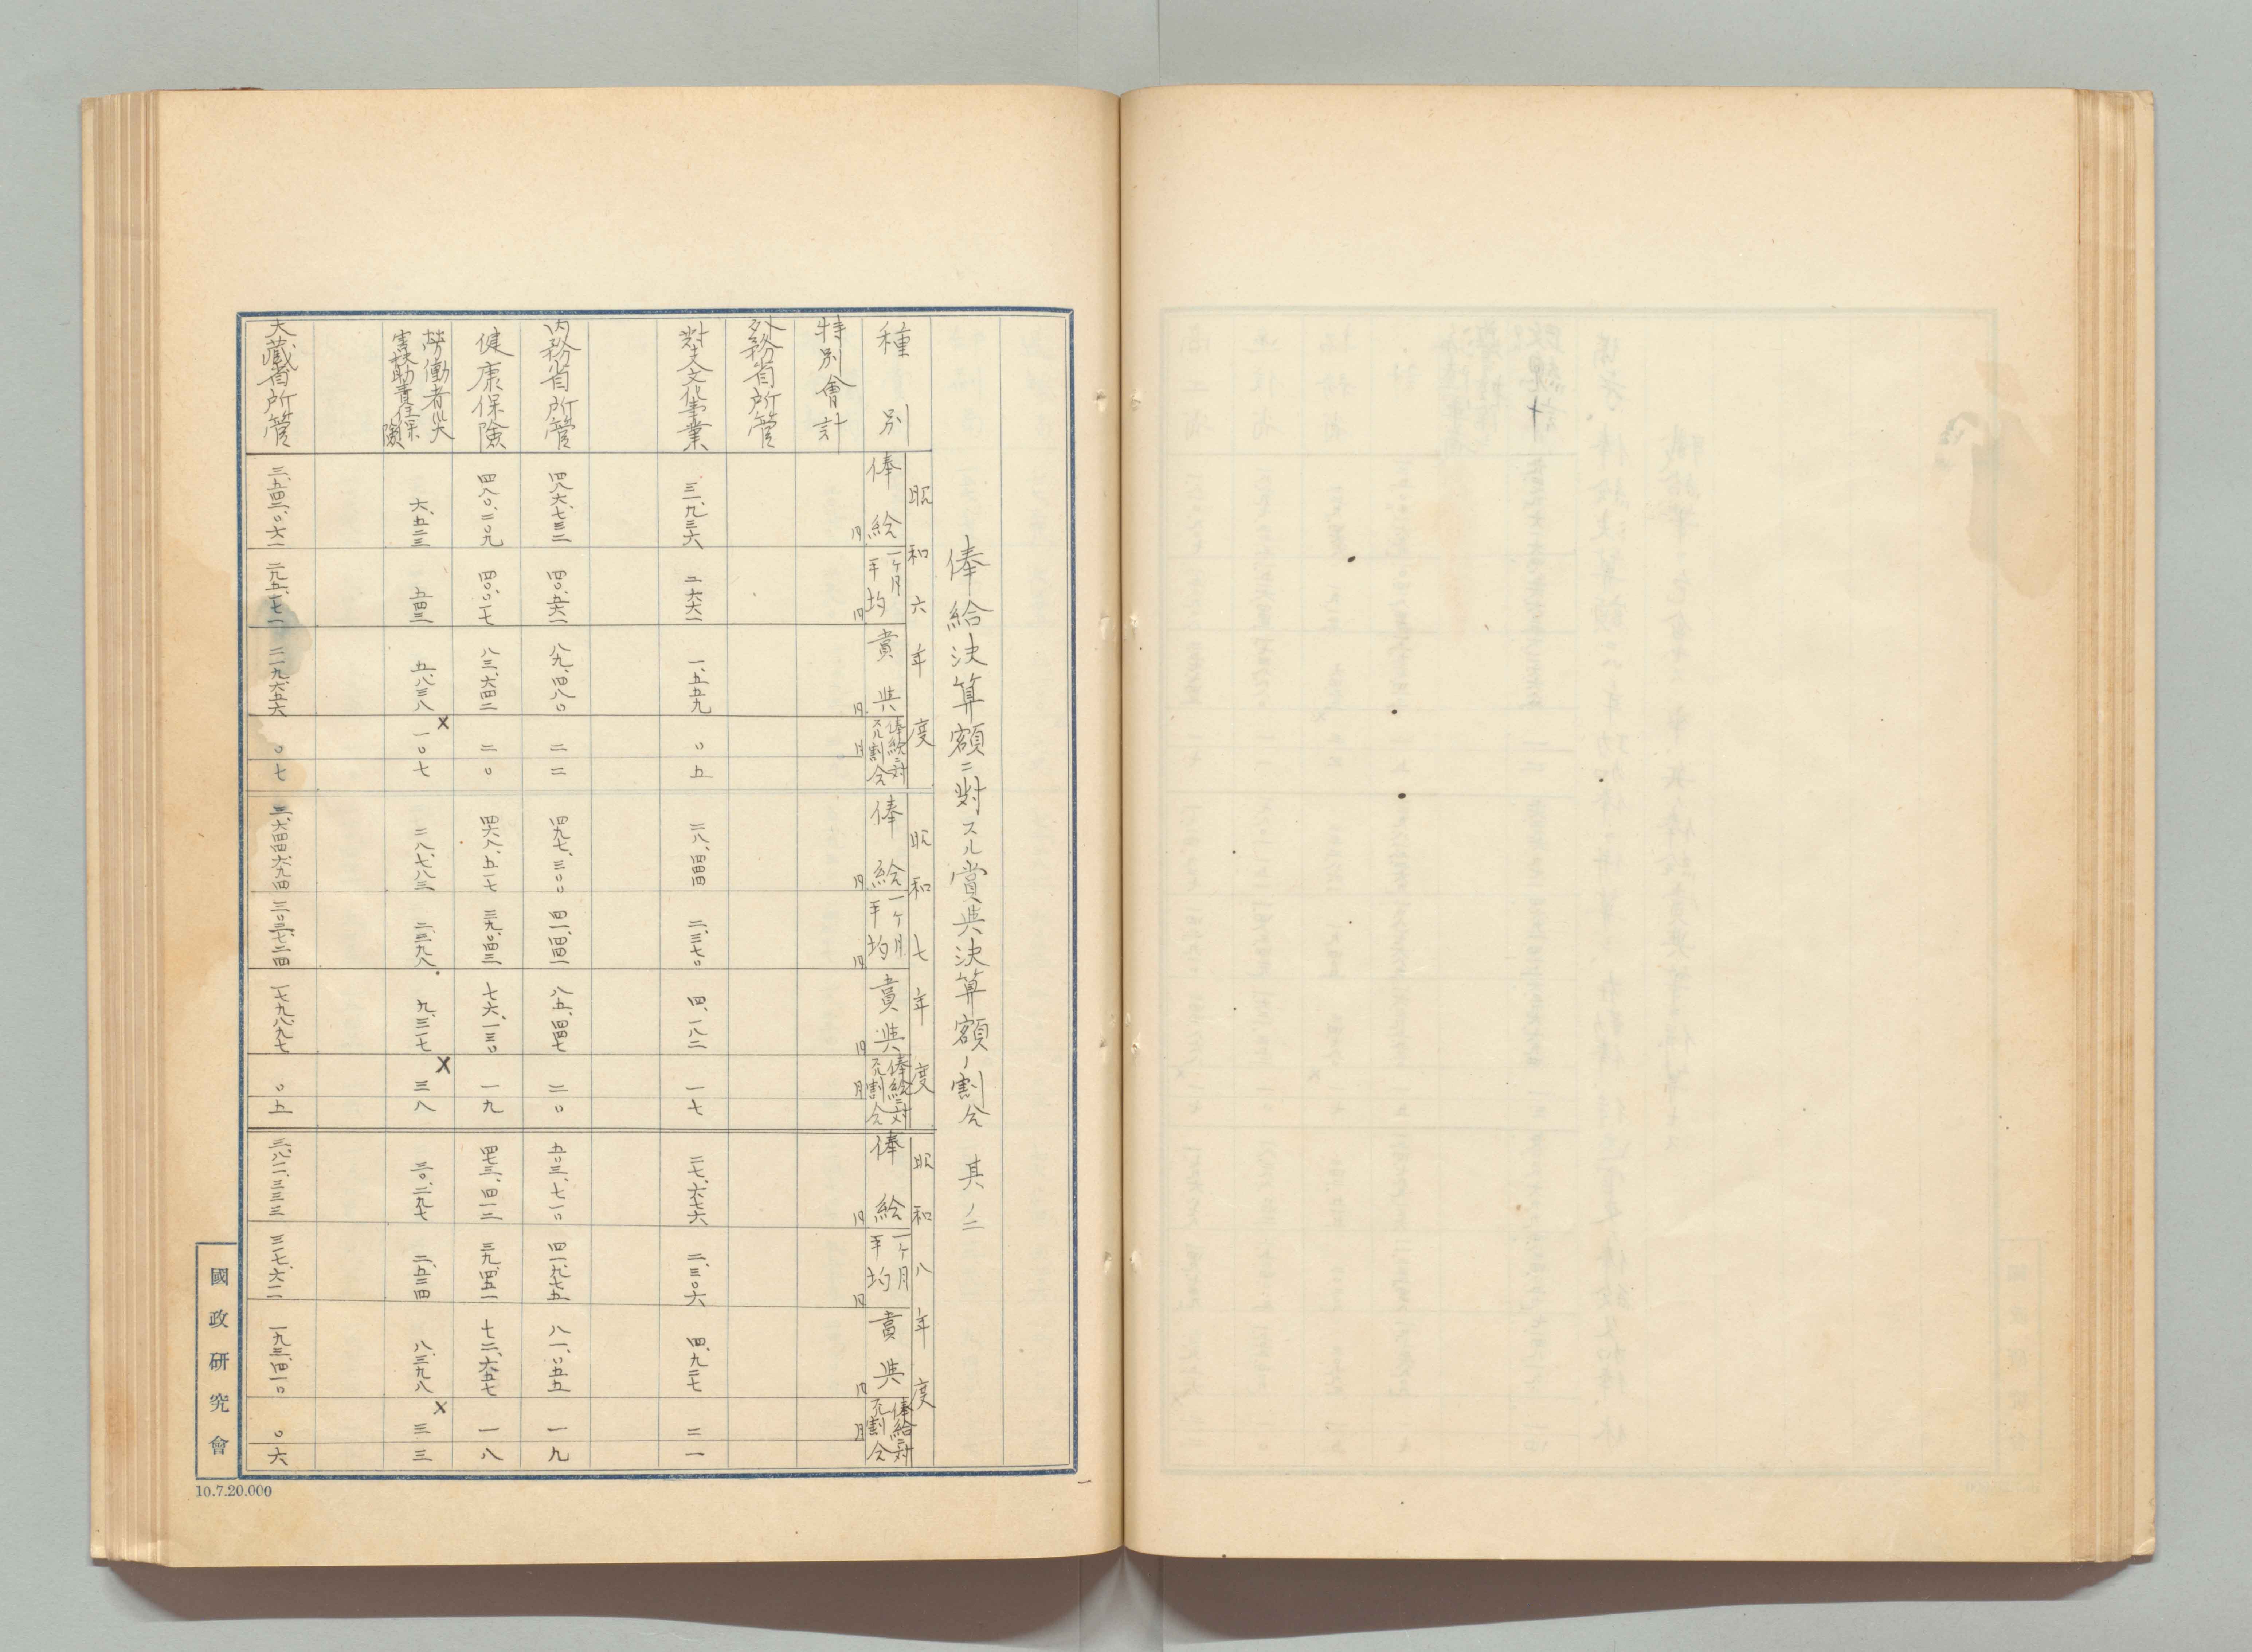 俸給決算額ニ対スル賞與決算額ノ割合 其ノ二
昭和六年度 昭和七年度 昭和八年度
種別 俸給 一ヶ月平均 賞與 俸給ニ対スル割合 俸給 一ヶ月平均 賞與 俸給ニ対スル割合 俸給 一ヶ月平均 賞與 俸給ニ対スル割合
特別會計 円 円 円 月 円 円 円 月 円 円 円 月
外務省所管
對支文化事業 三一、九三六 二、六六一 一、五五九 〇五 二八、四四四 二、三七〇 四、一八二 一七 二七、六七六 二、三〇六 四、九二七 二一
内務省所管 四八六、七三二 四〇、五六一 八九、四八〇 二二 四九七、三〇〇 四一、四四一 八五、四四七 二〇 五〇三、七一〇 四一、九七五 八一、〇五五 一九
健康保險 四八〇、二〇九 四〇、〇一七 八三、六四二 二〇 四六八、五一七 三九、〇四三 七六、一三〇 一九 四七三、四一二 三九、四五一 七二、六五七 一八
勞働者災害扶助責任保險 六、五二三 五四三 五、八三八 × 一〇七 二八、七八三 二、三九八 九、三一七 × 三八 三〇、二九七 二、五二四 八、三九八 × 三三
大藏省所管 三、五四二、〇六一 二九五、一七一 二一九、六五六 〇七 三、六四四、六九四 三〇三、七二四 一七九、八九七 〇五 三、八一一、三三三 三一七、六一一 一九三、四一〇 〇六
國政研究會
10.7.20.000